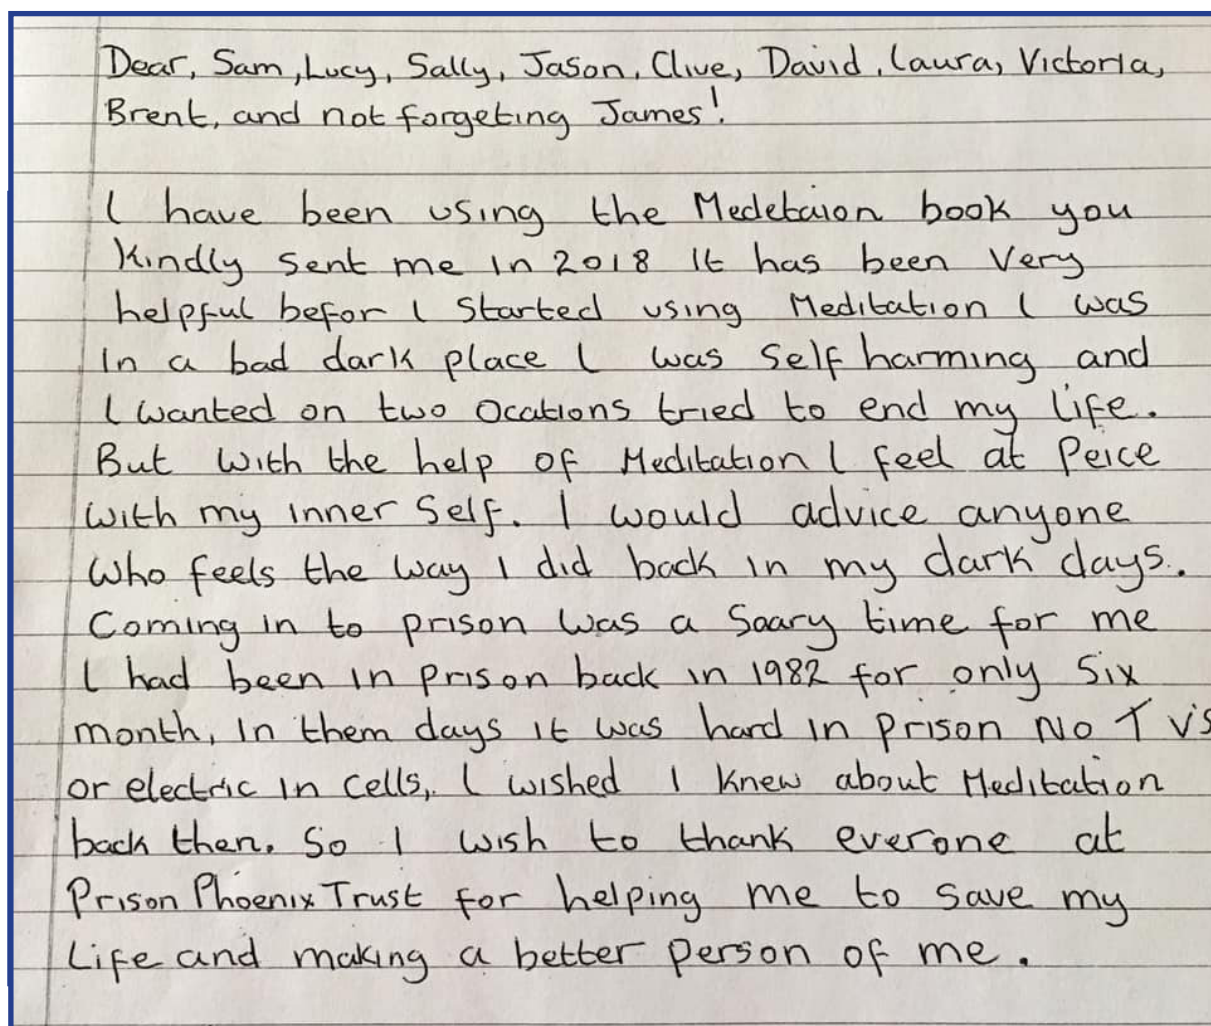 Dear, Sam, Lucy, Sally, Jason, Clive, David, Laura, Victoria,
Brent, and not forgeting James!
I have been using the Medetaion book you
Kindly sent me in 2018 It has been Very
helpful befor I Started using Meditation I was
In a bad dark place I was Self harming and
I wanted on two Ocations tried to end my life.
But with the help of Meditation I feel at Peice
with my inner Self. I would advice anyone
Who feels the way I did back in my dark days.
Coming in to prison was a Scary time for me
I had been in prison back in 1982 for only Six
month, In them days it was hard in prison No T V's
or electric in cells, I wished I Knew about Meditation
back then. So I wish to thank everone at
Prison Phoenix Trust for helping me to save my
Life and making a better person of me.